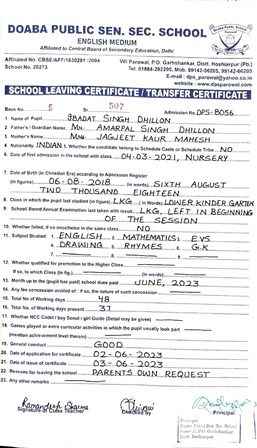 DOABA PUBLIC SEN. SEC. SCHOOL
ENGLISH MEDIUM
Affiliated to Central Board of Secondary Education, Delhi
Affiliated No. CBSE/AFF/1630281/2004 Vill Parowal, P.O. Garhshankar, Distt. Hoshiarpur (Pb.)
School No. 20273 Tel. 01884-282205, Mob. 99142-56205, 99142-66205
E-mail : dps_parowal@yahoo.co.in
Website : www.dpsparowal.com
SCHOOL LEAVING CERTIFICATE / TRANSFER CERTIFICATE
Book No. 6 Sr 507 Admission No. DPS-8056
1. Name of Pupil IBADAT SINGH DHILLON
2. Father's / Guardian Name Mr. AMARPAL SINGH DHILLON
3. Mother's Name Mrs JAGJEET KAUR MAHESH
4. Nationality INDIAN 5. Whether the candidate belong to Schedule Caste or Schedule Tribe NO
6. Date of first admission in the school with class 04-03-2021, NURSERY
7. Date of Birth (in Christian Era) according to Admission Register
(In figures) 06-08-2018 (in words) SIXTH AUGUST
TWO THOUSAND EIGHTEEN
8. Class in which the pupil last studied (in figure) LKG (in words) LOWER KINDER GARTEN
9. School/Board Annual Examination last taken with result LKG, LEFT IN BEGINNING
OF THE SESSION
10. Whether failed, if so once/twice in the same class NO
11. Subject Studied : 1. ENGLISH 2. MATHEMATICS 3. EVS
4. DRAWING 5. RHYMES 6. G.K
12. Whether qualified for promotion to the Higher Class
If so, to which Class (in fig.) (in words)
13. Month up to the (pupil has paid) school dues paid JUNE, 2023
14. Any fee concession availed of : if so, the nature of such concession
15. Total No. of Working days 48
16. Total No. of Working days present 37
17. Whether NCC Cadet / boy Scout / girl Guide (Detail may be given)
18. Games played or extra curricular activities in which the pupil usually took part
(mention achievement level therein)
19. General conduct GOOD
20. Date of application of certificate 02-06-2023
21. Date of issue of certificate 03-06-2023
22. Reasons for leaving the school PARENT'S OWN REQUEST
23. Any other remarks
Signature of Class Teacher Checked by Principal
Principal
Doaba Public Sen. Sec. School
Parowal, P.O. Garhshankar
Distt. Hoshiarpur